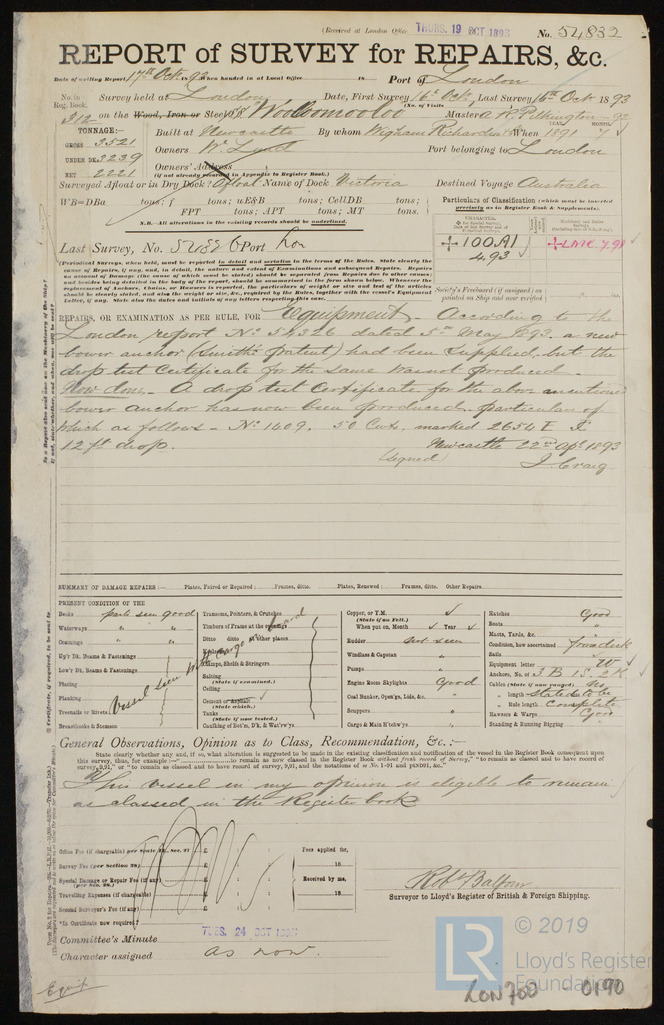 (Received at London Office THURS. 19 OCT 1893
No. 54832
REPORT of SURVEY for REPAIRS, &c.
Date of writing Report 17th Oct. 1893 When handed in at Local Office 18 Port of London
No. in Reg. Book. Survey held at London Date, First Survey 16th Oct. Last Survey 16th Oct 1893
(No. of Visits
312 on the Wood, Iron or Steel Woolloomooloo Master A. R. Pilkington
TONNAGE:— Built at Newcastle By whom Wigham Richardson When 1891 7
YEAR. MONTH.
GROSS 3521 Owners W. Lund Port belonging to London
UNDER DK 3239 Owners' Address
(if not already recorded in Appendix to Register Book.)
NET 2221
Surveyed Afloat or in Dry Dock? Afloat Name of Dock Victoria Destined Voyage Australia
WB=DBa tons; f tons; uE&B tons; CellDB tons;
FPT tons; APT tons; MT tons.
N.B.—All alterations in the existing records should be underlined.
Particulars of Classification (which must be inserted precisely as in Register Book & Supplements).
CHARACTER.
100A1
4,93
LMC 7,91
Last Survey, No. Port Lon
Society's Freeboard (if assigned) as painted on Ship and now verified
(Periodical Surveys, when held, must be reported in detail and seriatim in the terms of the Rules. State clearly the
cause of Repairs, if any, and, in detail, the nature and extent of Examinations and subsequent Repairs. Repairs
on account of Damage (the cause of which must be stated) should be separated from Repairs due to other causes;
and besides being detailed in the body of the report, should be summarised in the form shown below. Whenever the
replacement of Anchors, Chains, or Hawsers is reported, the particulars of weight or size and test of the articles
should be clearly stated, and also the weight or size, &c., required by the Rules, together with the vessel's Equipment
Letter, if any. State also the dates and initials of any letters respecting this case.
REPAIRS, OR EXAMINATION AS PER RULE, FOR Equipment - According to the
London report No. 54326 dated 5th May 1893 a new
bower anchor (Smith's patent) had been supplied, but the
drop test Certificate for the same was not produced.
Now done - A drop test Certificate for the above mentioned
bower anchor has now been produced, particulars of
which as follows - No. 1409. 50 Cwts, marked 2654 E
12 ft drop. Newcastle 22nd Apl 1893
(signed) J. Craig
SUMMARY OF DAMAGE REPAIRS:— Plates, Faired or Repaired: Frames, ditto. Plates, Renewed: Frames, ditto. Other Repairs.
PRESENT CONDITION OF THE
Decks parts seen good
Waterways " "
Coamings " "
Up'r Dk. Beams & Fastenings
Low'r Dk. Beams & Fastenings
Plating
Planking
Treenails or Rivets
Breasthooks & Stemson
Vessel seen with Cargo on board
Transoms, Pointers, & Crutches
Timbers of Frame at the openings
Ditto ditto at other places
Keelsons
Clamps, Shelfs & Stringers
Salting
(State if examined.)
Ceiling
Cement or Asphalt
(State which.)
Tanks
(State if now tested.)
Caulking of Bot'm, D'k, & Wat'w'ys
Copper, or Y.M.
(State if on Felt.)
When put on, Month Year
Rudder not seen
Windlass & Capstan
Pumps
Engine Room Skylights Good
Coal Bunker, Open'gs, Lids, &c. "
Scuppers "
Cargo & Main H'tchw'ys "
Hatches Good
Boats "
Masts, Yards, &c. "
Condition, how ascertained from deck
Sails
Equipment letter W
Anchors, No. of 3 B 1 S 2 K
Cables (State if now ranged) No
" length stated to be
" Rule length Complete
Hawsers & Warps Good
Standing & Running Rigging "
General Observations, Opinion as to Class, Recommendation, &c.:—
State clearly whether any, and if, so, what alteration is suggested to be made in the existing classification and notification of the vessel in the Register Book consequent upon
This vessel in my opinion is eligible to remain
as classed in the Register book
Office Fee (if chargeable) per Scale £ Fees applied for,
Survey Fee (per Section 28) £ 18
Special Damage or Repair Fee (if any) (per Sec. 28.) £ Received by me,
Travelling Expenses (if chargeable) £ 18
Second Surveyor's Fee (if any) £
Is Certificate now required?
Robt Balfour
Surveyor to Lloyd's Register of British & Foreign Shipping.
Committee's Minute TUES. 24 OCT 1893
Character assigned as now.
Equipt
LR
© 2019
Lloyd's Register
Foundation
LON700 - 0190